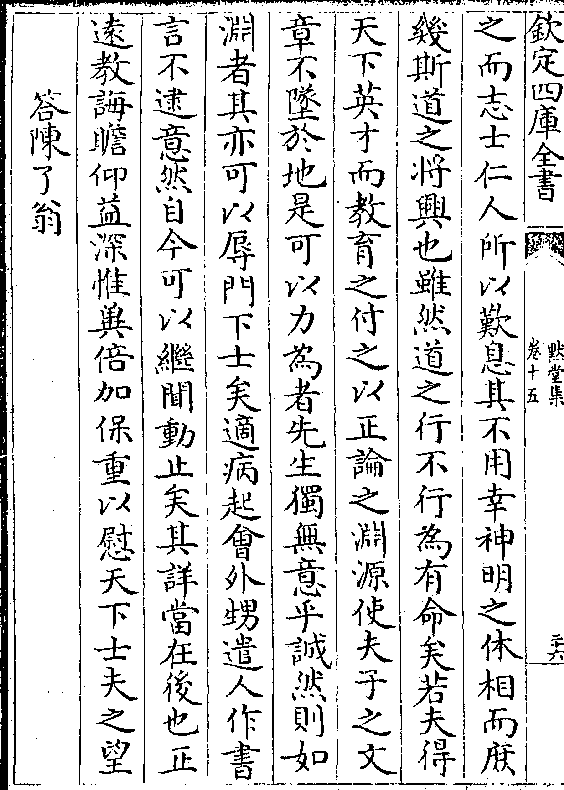 欽定四庫全書
默堂集
卷十五
二十六
之而志士仁人所以歎息其不用幸神明之休相而庶
幾斯道之將興也雖然道之行不行為有命矣若夫得
天下英才而教育之付之以正論之淵源使夫子之文
章不墜於地是可以力為者先生獨無意乎誠然則如
淵者其亦可以辱門下士矣適病起會外甥遣人作書
言不逮意然自今可以繼聞動止矣其詳當在後也正
遠教誨瞻仰益深惟兾倍加保重以慰天下士夫之望
答陳了翁